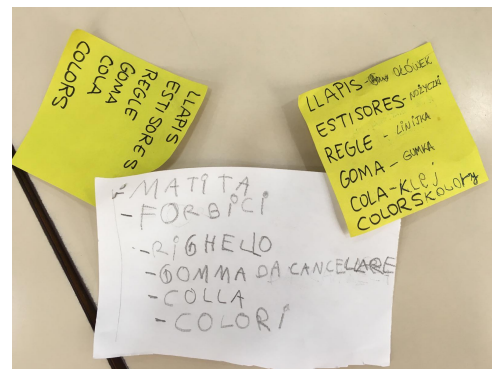 LLAPIS
ESTISORES
REGLE
GOMA
COLA
COLORS
LLAPIS - OŁÓWEK
ESTISORES - NOŻYCZKI
REGLE - LINIJKA
GOMA - GUMKA
COLA - KLEJ
COLORSKOLORY
- MATITA
- FORBICI
- RIGHELLO
- GOMMA DA CANCELLARE
- COLLA
- COLORI